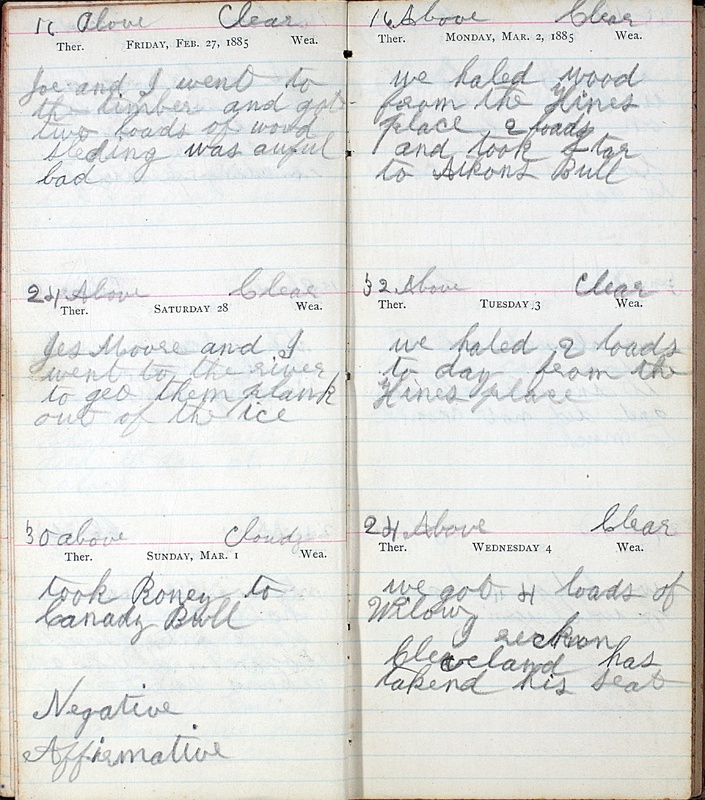 16 Above Clear
Ther. FRIDAY, FEB. 27, 1885 Wea.
Joe and I went to
the timber and got
two loads of wood
sleding was auful
bad
24 Above Clear
Ther. SATURDAY 28 Wea.
Jes Moore and I
went to the river
to get them plank
out of the ice
30 above Cloudy
Ther. SUNDAY, MAR. 1 Wea.
took Roney to
Canady Bull
Negative
Affirmative
16 Above Clear
Ther. MONDAY, MAR. 2, 1885 Wea.
we haled wood
from the Hines
place 2 loads
and took Star
to Aikons Bull
32 Above Clear
Ther. TUESDAY 3 Wea.
we haled 2 loads
to day from the
Hines place
24 Above Clear
Ther. WEDNESDAY 4 Wea.
we got 4 loads of
Wilow
I reckon
Cleaveland has
takend his seat